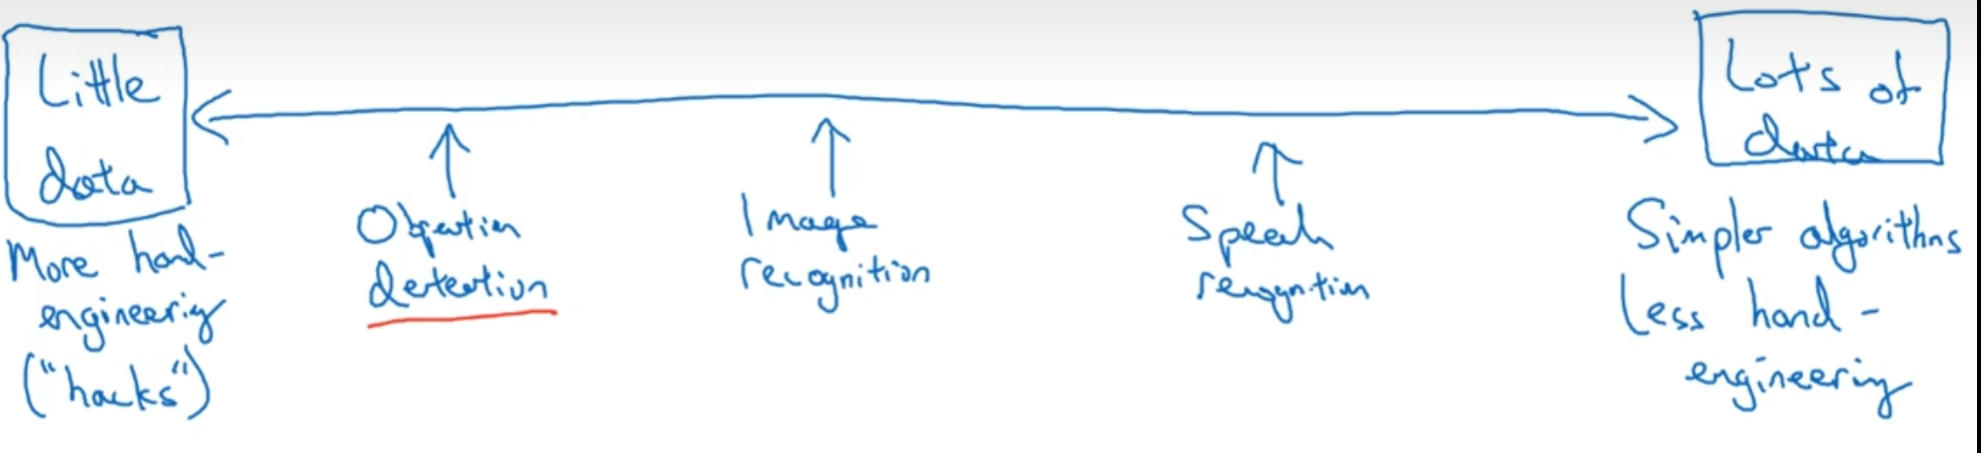 Little
data
More hand-
engineering
("hacks")
Objection
detection
Image
recognition
Speech
recognition
Lots of
data
Simpler algorithms
Less hand-
engineering